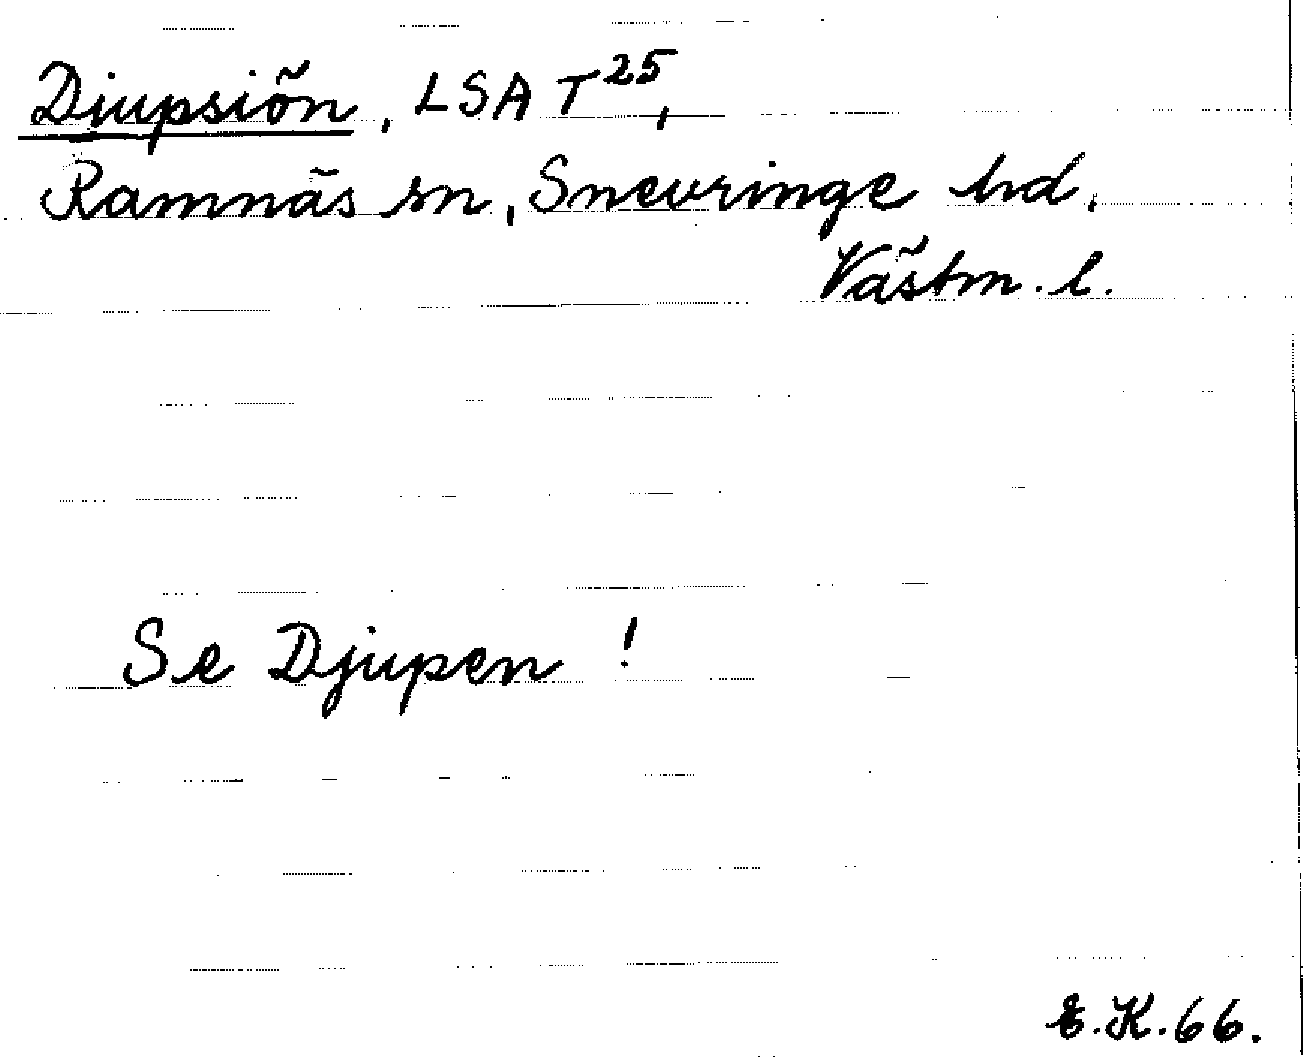 Diupsiön, LSA T²⁵,
Ramnäs sn, Snevringe hd,
Västm. l.
Se Djupen !
E.K.66.